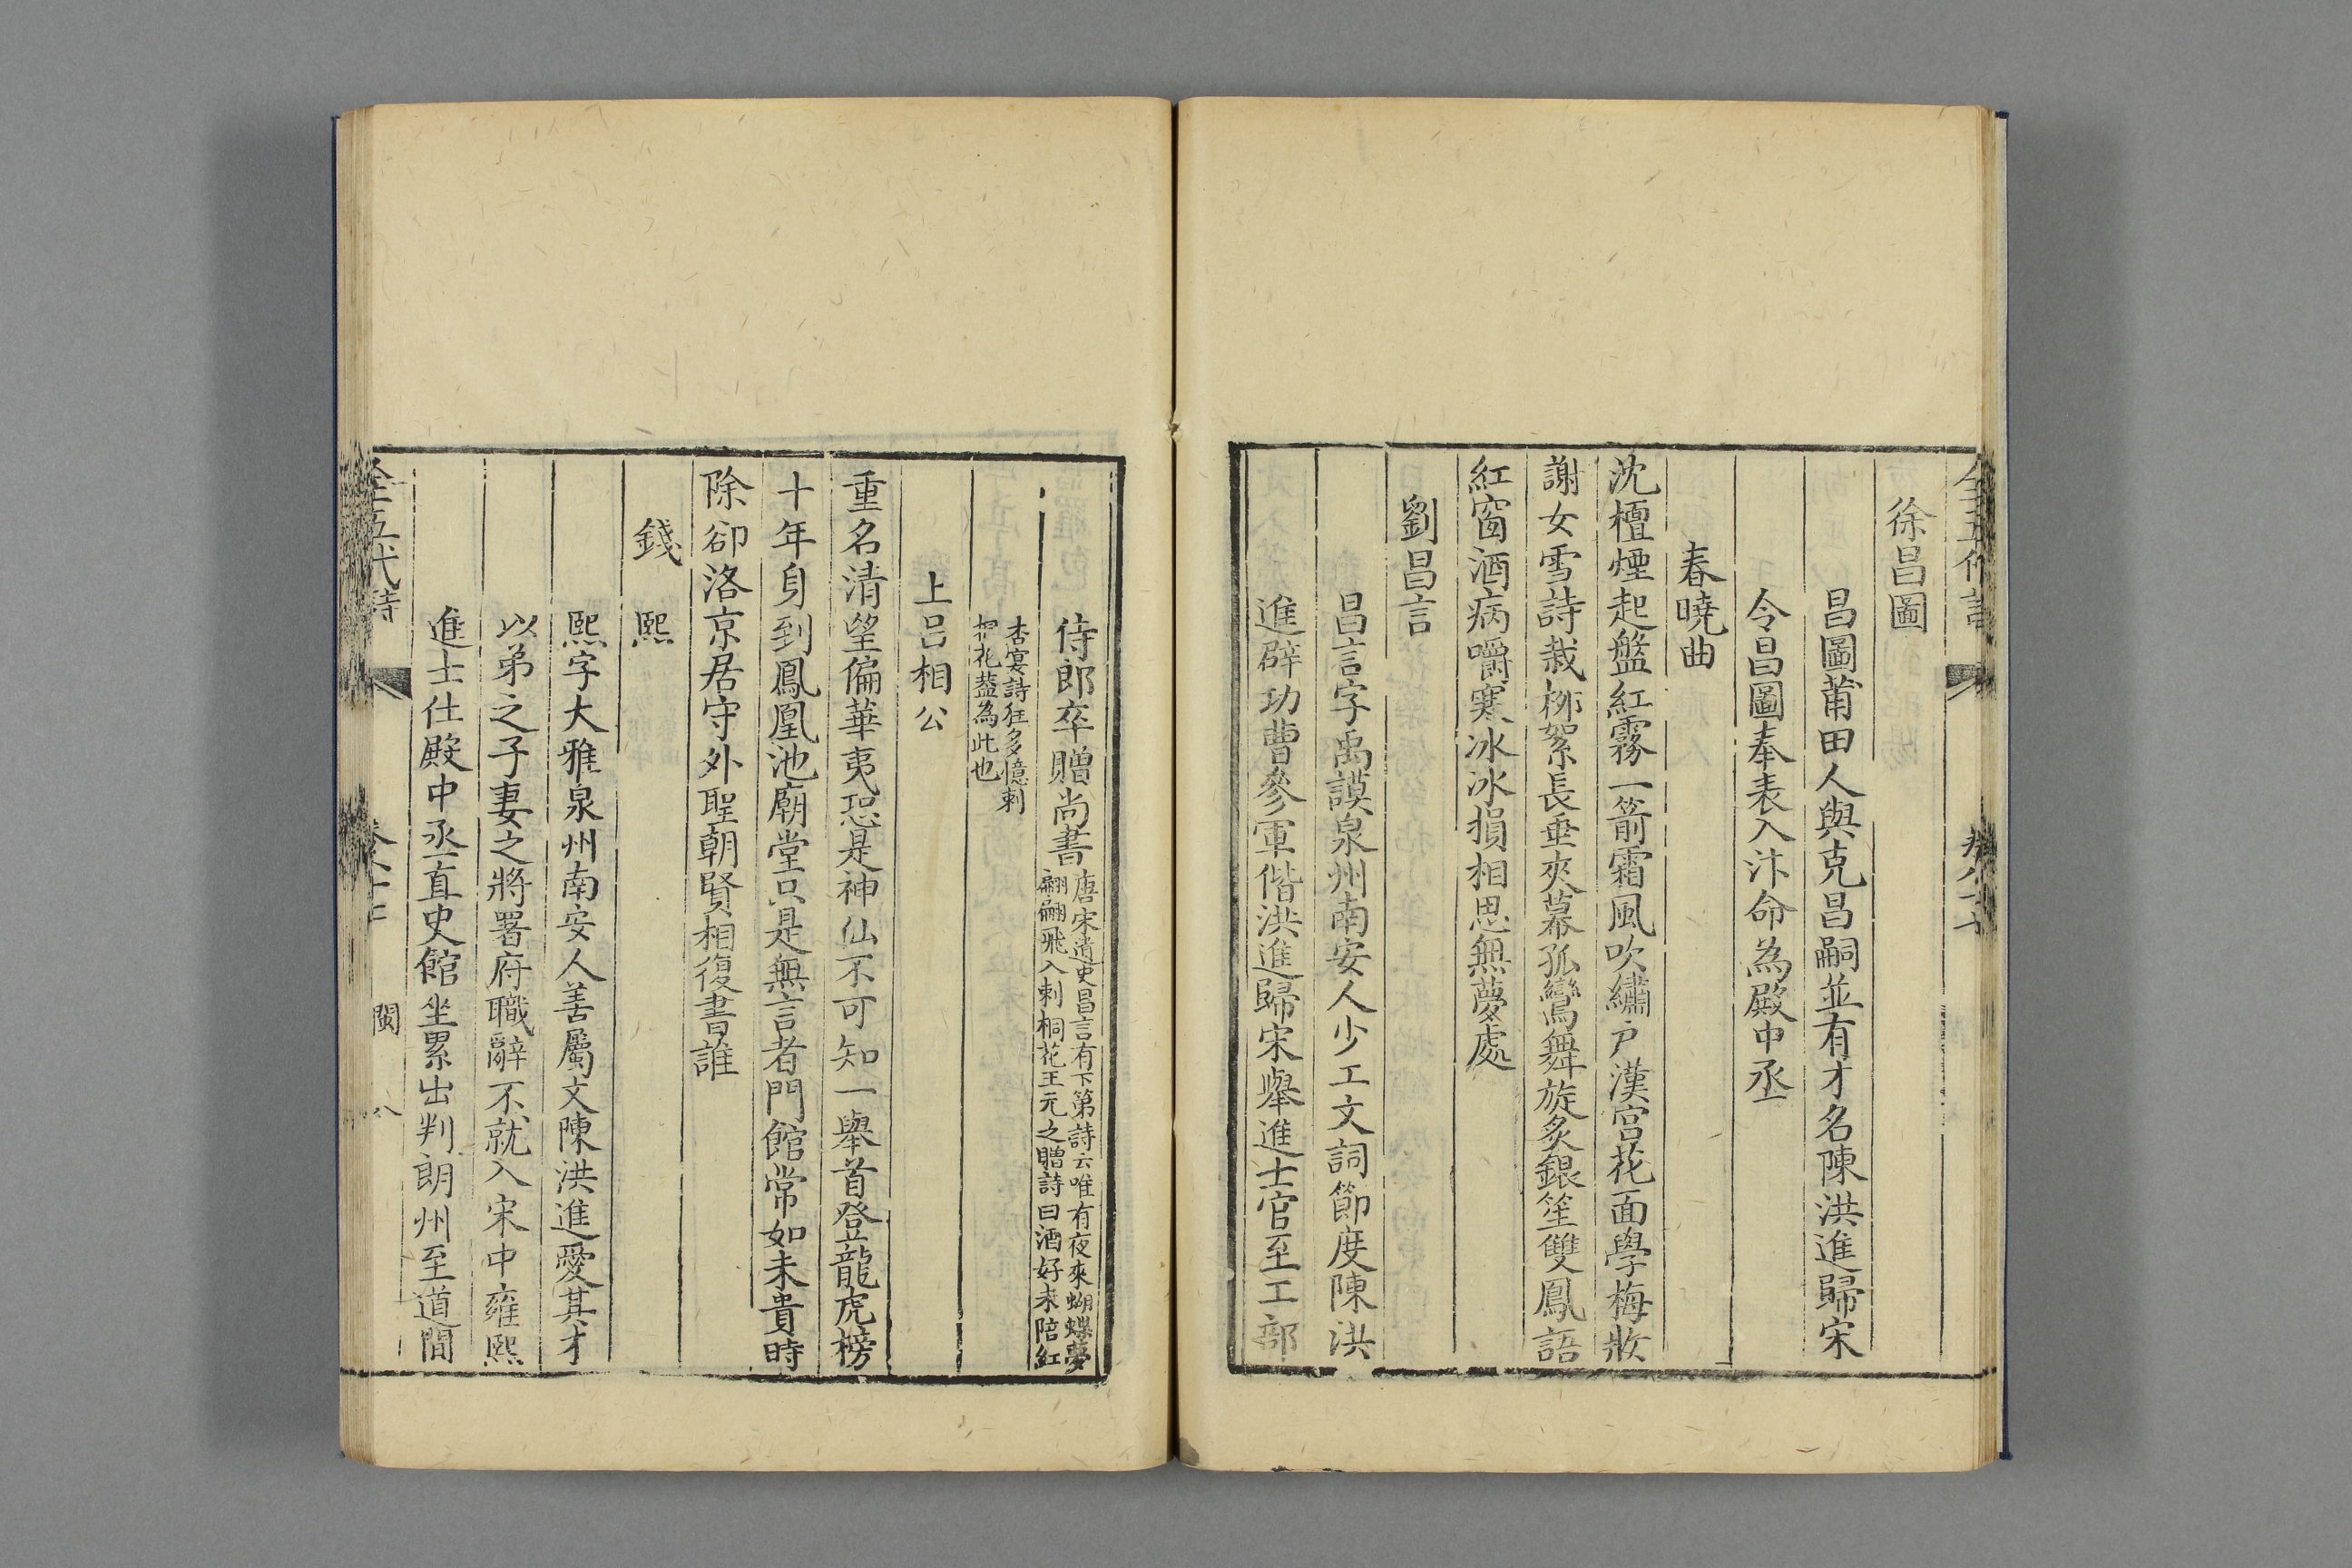 徐昌圖
昌圖莆田人與克昌嗣並有才名陳洪進歸宋
令昌圖奉表入汴命為殿中丞
春曉曲
沈檀煙起盤紅霧一箭霜風吹繡戶漢宮花面學梅妝
謝女雪詩裁栁絮長垂夾幕孤鸞舞旋炙銀笙雙鳳語
紅窗酒病嚼寒冰冰損相思無夢處
劉昌言
昌言字禹謨泉州南安人少工文詞節度陳洪
進辟功曹參軍偕洪進歸宋舉進士官至工部
侍郎卒贈尚書唐宋遺史昌言有下第詩云唯有夜來蝴蝶夢
翩翩飛入刺桐花王元之贈詩曰酒好未陪紅
杏宴詩狂多憶刺
桐花蓋為此也
上呂相公
重名清望偏華夷恐是神仙不可知一舉首登龍虎榜
十年身到鳳凰池廟堂只是無言者門館常如未貴時
除卻洛京居守外聖朝賢相復書誰
錢熙
熙字大雅泉州南安人善屬文陳洪進愛其才
以弟之子妻之將署府職辭不就入宋中雍熙
進士仕殿中丞直史館坐累出判朗州至道間
全五代詩
閩
八